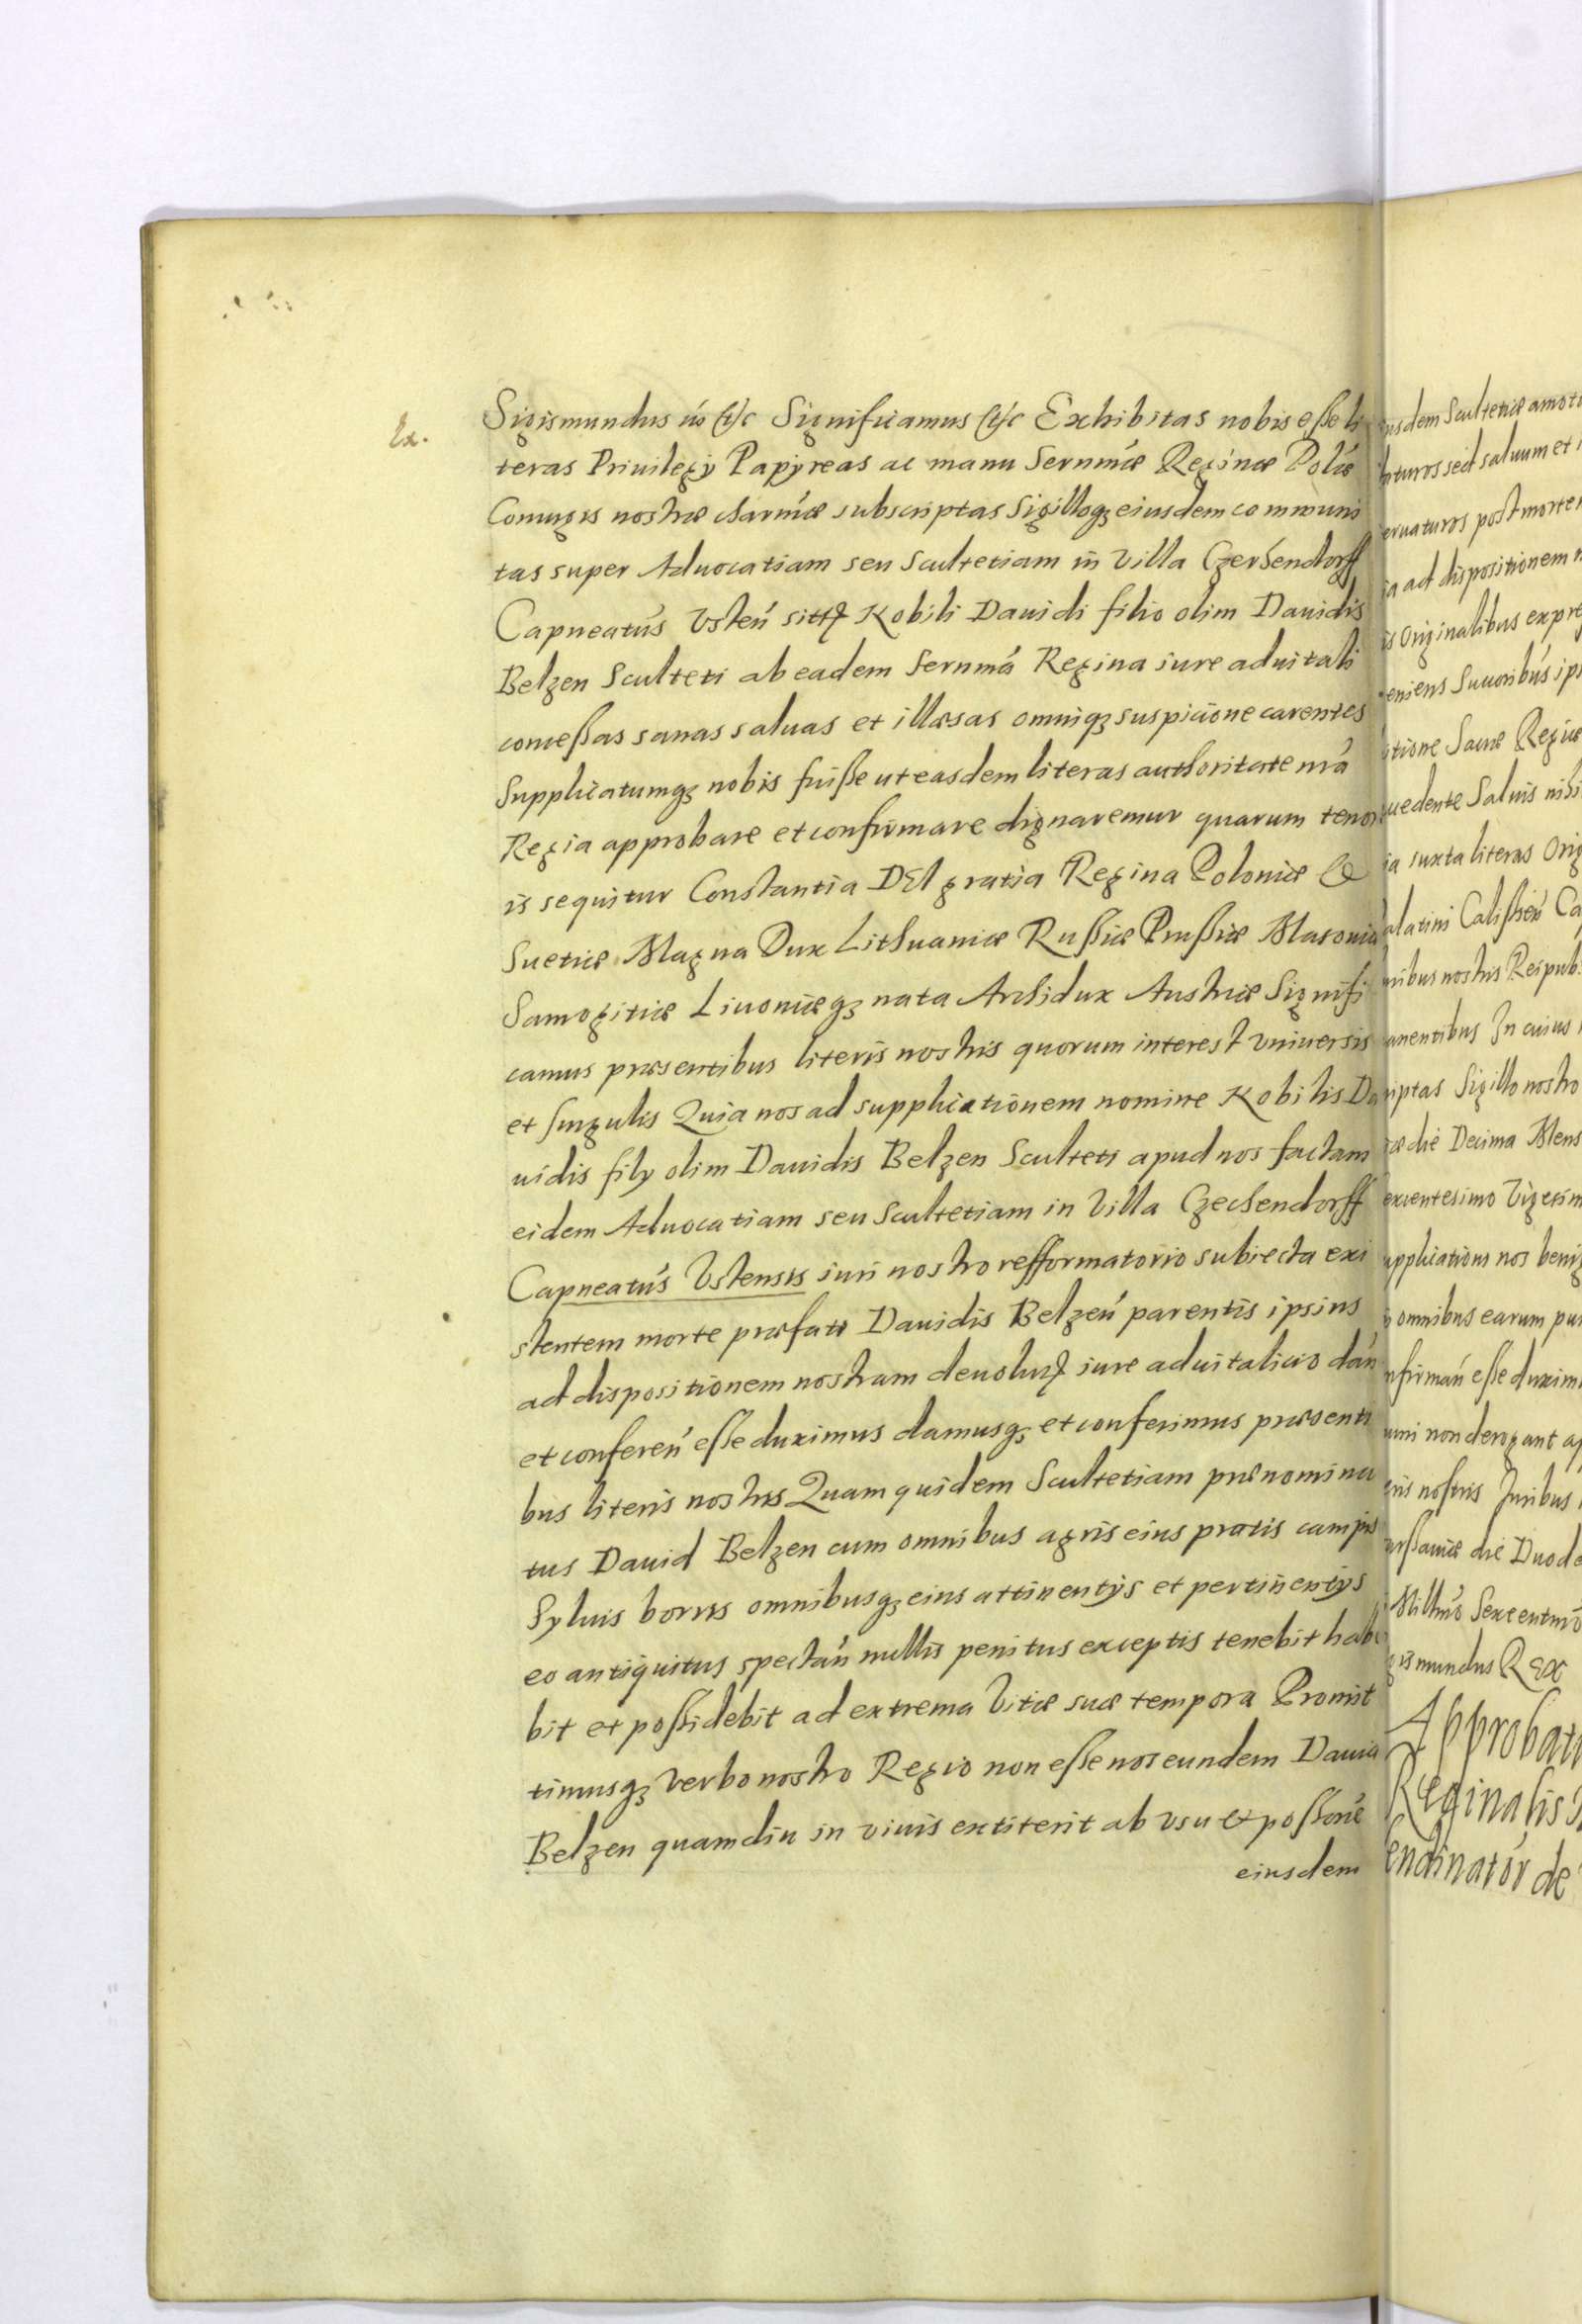 Ex.
Sigismundus iiś &c Significamus &c Exhibitas nobis esse li
teras Priuilegÿ Papÿreas ac manu Sernmæ Reginæ Polæ
Coniugis nostræ charmæ subscriptas Sigilloqz eiusdem communi
tas super Aduocatiam seu Scultetiam in Villa Czechendorff
Capneatus Vsten sitt Nobili Dauidi filio olim Dauidis
Belzen Sculteti ab eadem Sernma Regina iure aduitali
concessas sanas saluas et illæsas omniqz suspicione carentes
Supplicatumqz nobis fuisse ut easdem literas authoritate nra
Regia approbare et confirmare dignaremur quarum tenor
is sequitur Constantia DEI gratia Regina Poloniæ &
Suetiæ Magna Dux Lithuaniæ Russiæ Prussiæ Masouiæ
Samogitiæ Liuoniæqz nata Archidux Austriæ Signifi
camus præsentibus literis nostris quorum interest vniuersis
et singulis Quia nos ad supplicationem nomine Nobilis Da
uidis filÿ olim Dauidis Belzen Sculteti apud nos factam
eidem Aduocatiam seu Scultetiam in Villa Czechendorff
Capneatus Vstensis iuri nostro refformatorio subiecta exi
stentem morte præfati Dauidis Belzen parentis ipsius
ad dispositionem nostram deuolut iure aduitalicio dan
et conferen esse duximus damusqz et conferimus præsenti
bus literis nostris Quam quidem Scultetiam prænomina
tus Dauid Belzen cum omnibus agris eius pratis campis
Syluis borris omnibusqz eius attinentÿs et pertinentÿs
eo antiquitus spectan nullis penitus exceptis tenebit habe
bit et possidebit ad extrema Vitæ suæ tempora Promit
timusqz Verbo nostro Regio non esse nos eundem Dauid
Belzen quamdiu in viuis extiterit ab vsu et possone
eiusdem
iusdem Scultetiæ amotu
aturos sed saluum et
eruaturos post morte
ia ad dispositionem
is Originalibus expre
eniens Successoribus ips
tione Sacræ Regiæ
cedente Saluis nihi
ia iuxta literas Orig
alatini Calissien Ca
nibus nostris Reipub:
anentibus In cuius
riptas Sigillo nostro
iæ die Decima Mens
excentesimo Vigesim
upplicationi nos benig
i omnibus earum pun
nfirman esse duxim
umi non derogant ap
riis nostris Iuribus
arssauiæ die Duode
Millmo Sexcentmo
gismundus REX
Approbati
Reginalis
endinator de